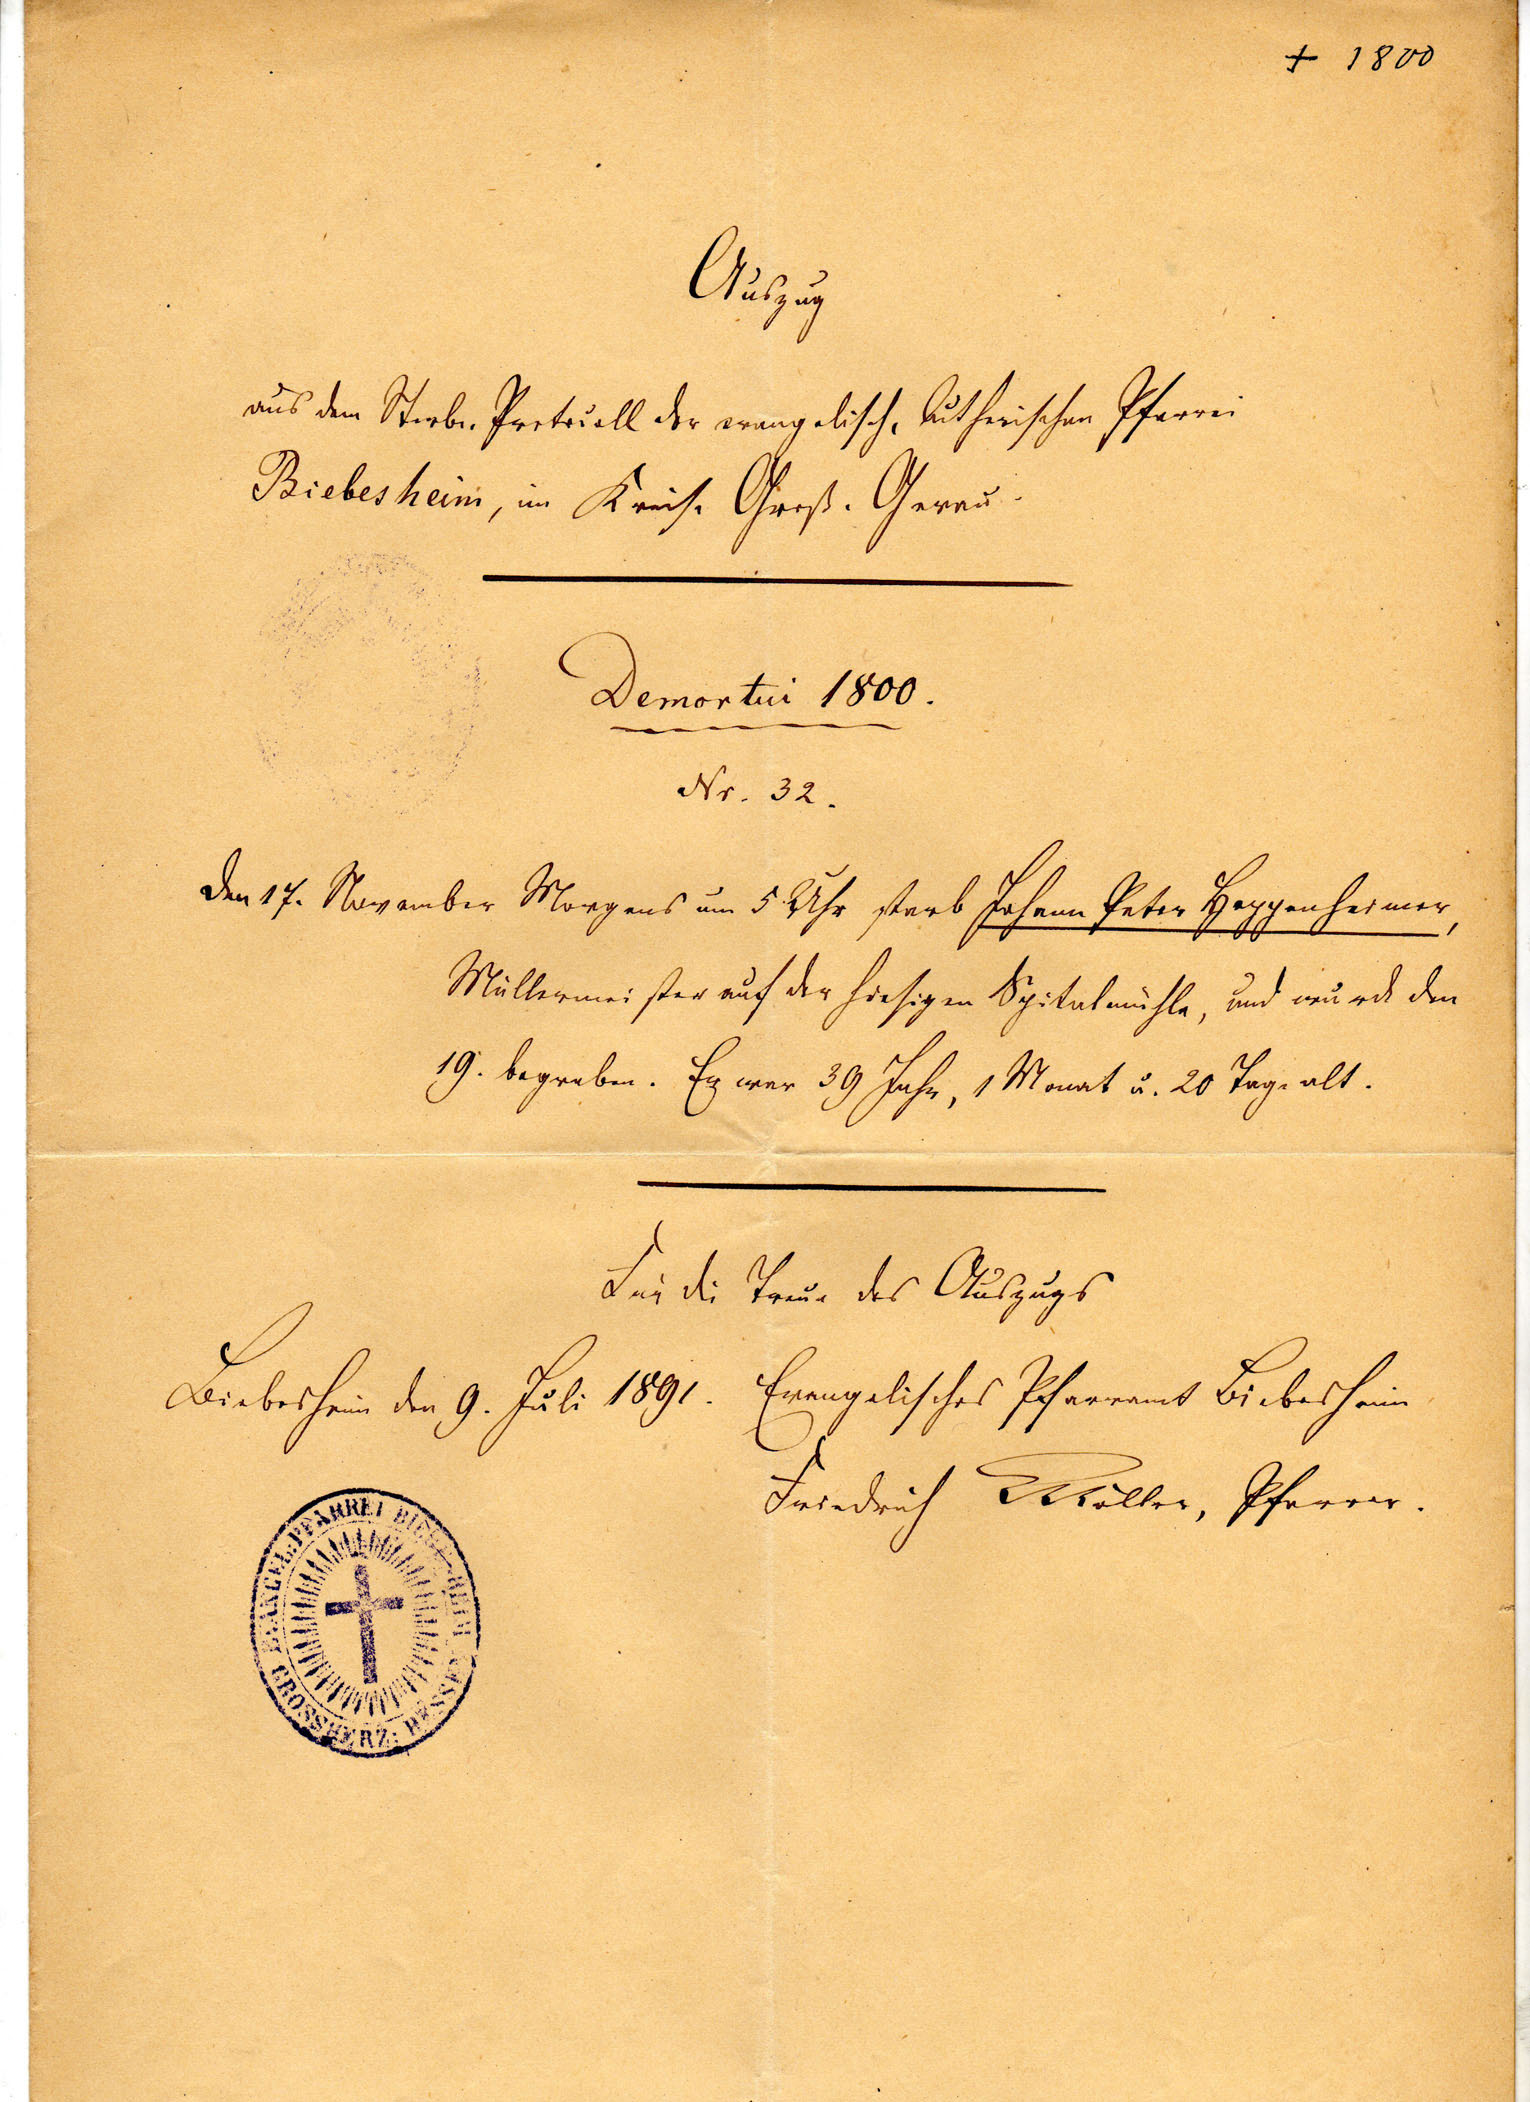 + 1800
Auszug
aus dem Sterbe-Protocoll der evangelisch-lutherischen Pfarrei
Biebesheim, im Kreise Groß-Gerau.
Demortui 1800.
Nr. 32.
Den 17. November Morgens um 5 Uhr starb Johann Peter Heppenheimer,
Müllermeister auf der hiesigen Spitalmühle, und wurde den
19. begraben. Er war 39 Jahr, 1 Monat u. 20 Tage alt.
Für die Treue des Auszugs
Biebesheim den 9. Juli 1891. Evangelisches Pfarramt Biebesheim
Friedrich Möller, Pfarrer.
EVANGEL. PFARREI BIEBESHEIM
GROSSHERZ: HESSEN